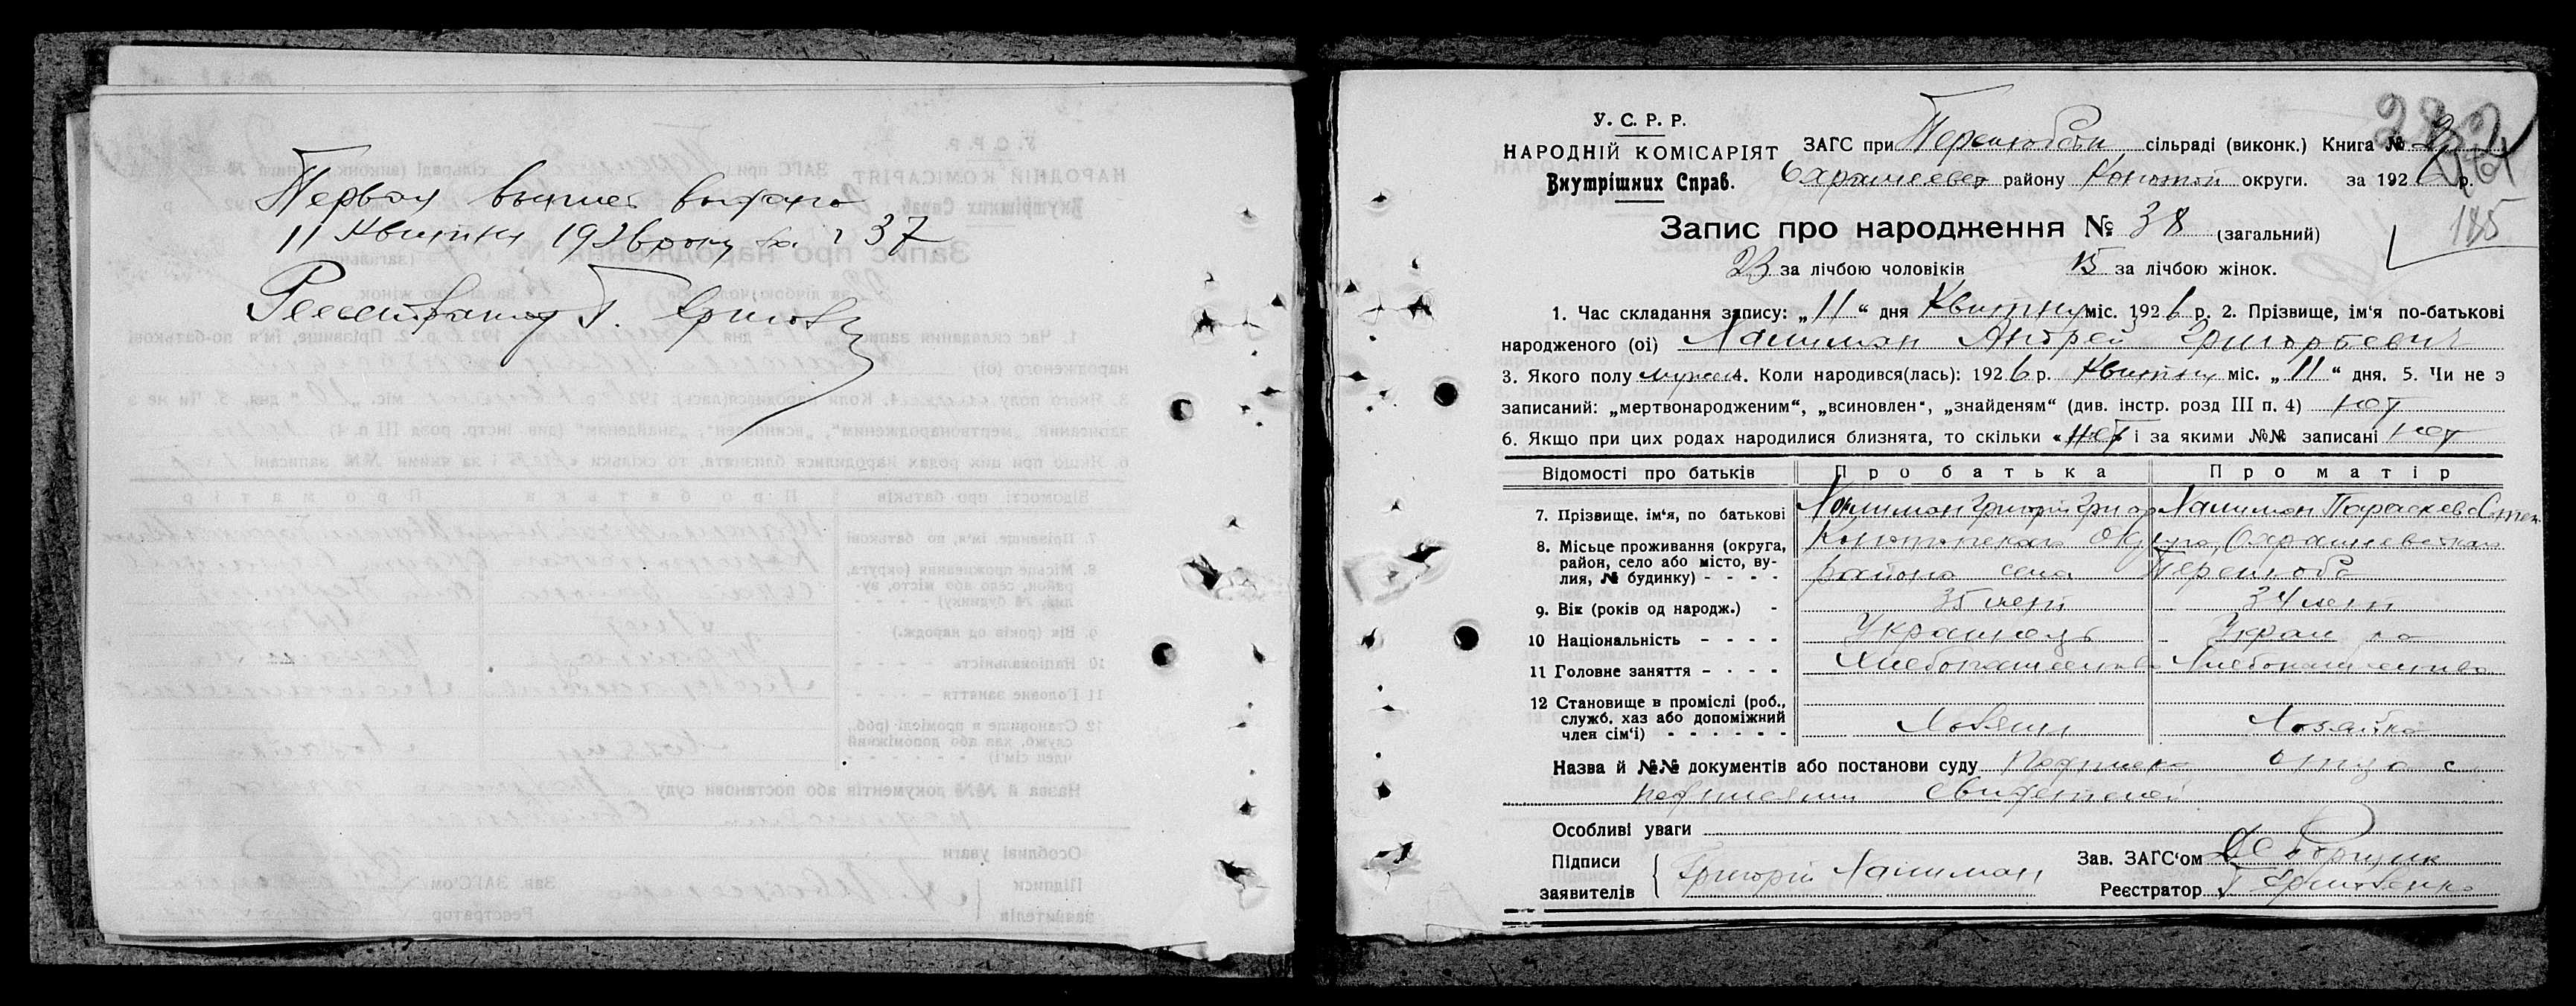 Первая выпись выдана
11 Квитня 1926 року за № 37
У. С. Р. Р.
НАРОДНІЙ КОМІСАРІЯТ
Внутрішних Справ.
ЗАГС при сільраді (виконк.) Книга №
району Конотоп округи. за 1926 р.
185
Запис про народження № 38 (загальний)
23 за лічбою чоловіків 15 за лічбою жінок.
1. Час складання запису: „11“ дня Квитня міс. 1926 р. 2. Прізвище, ім‘я по-батькові
народженого (ої) Халиман Андрей Григорьевич
3. Якого полу 4. Коли народився(лась): 1926 р. Квитня міс. „11“ дня. 5. Чи не э
записаний: „мертвонародженим“, „всиновлен“, „знайденям“ (див. інстр. розд III п. 4) нет
6. Якщо при цих родах народилися близнята, то скільки нет і за якими №№ записані нет
Відомості про батьків Про батька Про матір
7. Прізвище, ім‘я, по батькові Халиман Григорій Григор Халиман Параскева Степ
8. Місьце проживання (округа, район, село або місто, вулия, № будинку) - - - - Конотопская Округа,
района села Перелюбе
9. Вік (років од народж.) - 35 лет 34 лет
10 Національність - - - - Украинець
11 Головне заняття - - - - Хлебопашество Хлебопашество
12 Становище в проміслі (роб.,
служб. хаз або допоміжний
член сім‘ї) - - - - - - Хозяин Хозяйка
Назва й №№ документів або постанови суду отца с
свидетелей
Особливі уваги
Підписи
заявителів Григорій Халиман
Зав. ЗАГС‘ом
Реєстратор